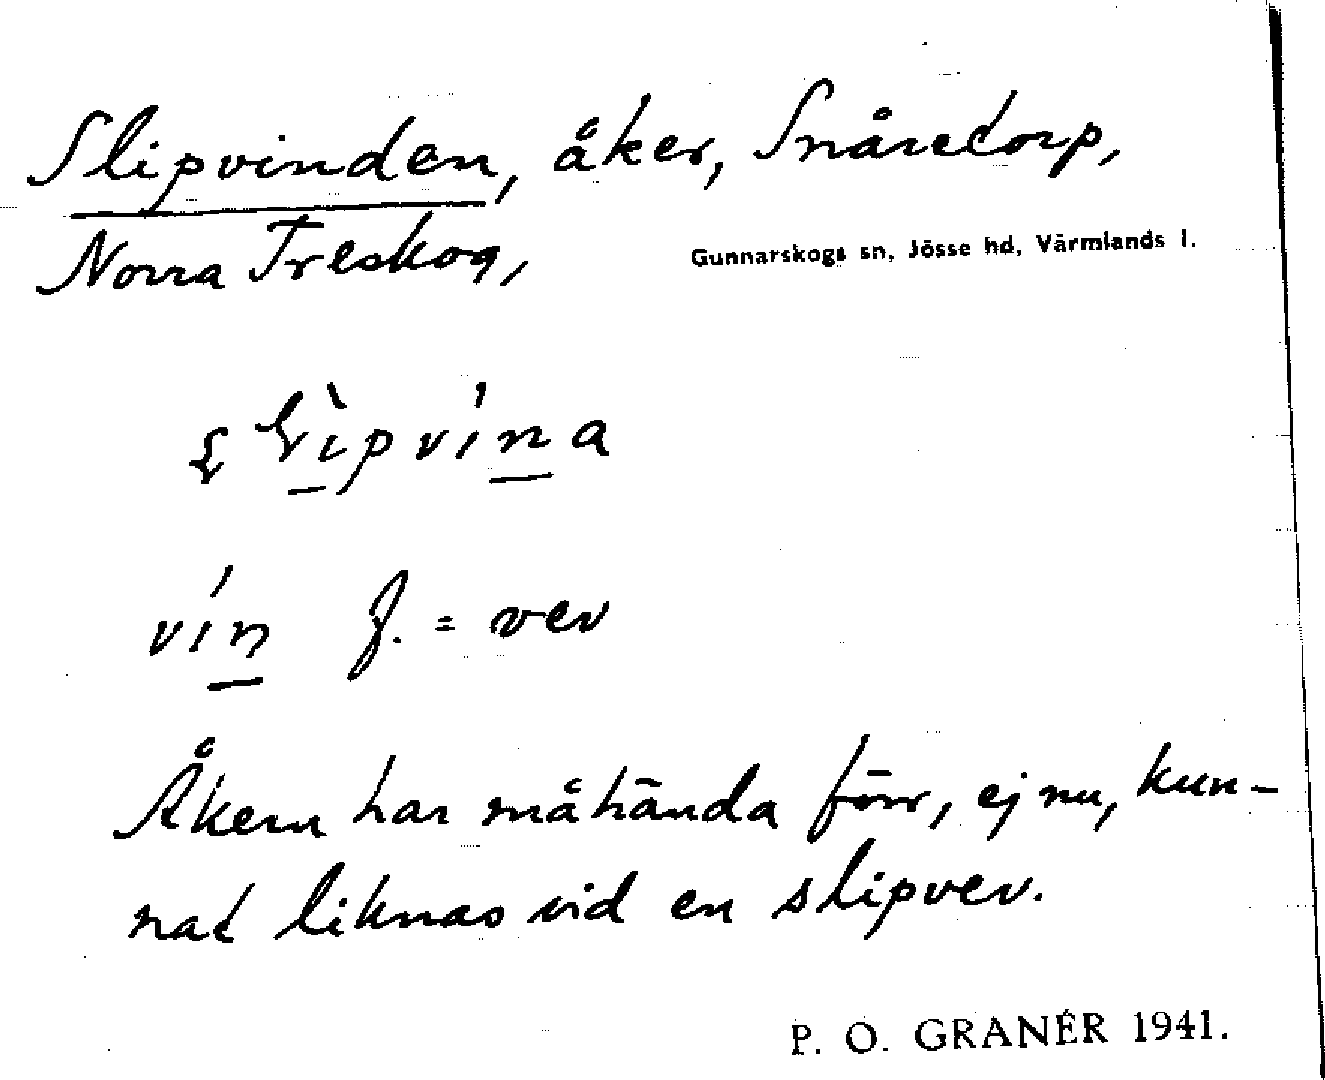 Slipvinden, åker, Snåretorp,
Norra Treskog, Gunnarskogs sn, Jösse hd, Värmlands l.
vín f. = vev
Åkern har måhända förr, ej nu, kun-
nat liknas vid en slipvev.
P. O. GRANÉR 1941.